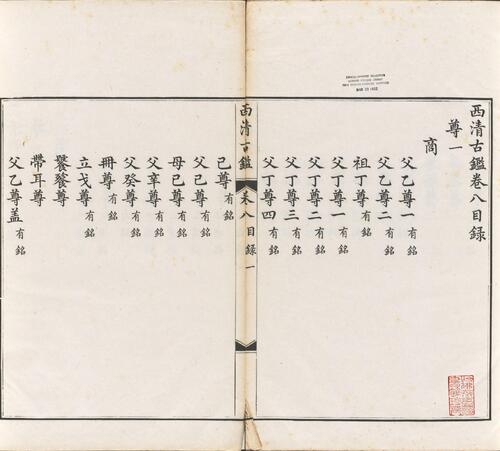 西清古鑑卷八目錄
尊一
商
父乙尊一 有銘
父乙尊二 有銘
祖丁尊 有銘
父丁尊一 有銘
父丁尊二 有銘
父丁尊三 有銘
父丁尊四 有銘
西清古鑑 卷八目錄 一
己尊 有銘
父己尊 有銘
母己尊 有銘
父辛尊 有銘
父癸尊 有銘
冊尊 有銘
立戈尊 有銘
饕餮尊
帶耳尊
父乙尊蓋 有銘